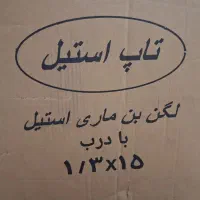 تاپ استیل
لگن بن ماری استیل
با درب
۱/۳×۱۵